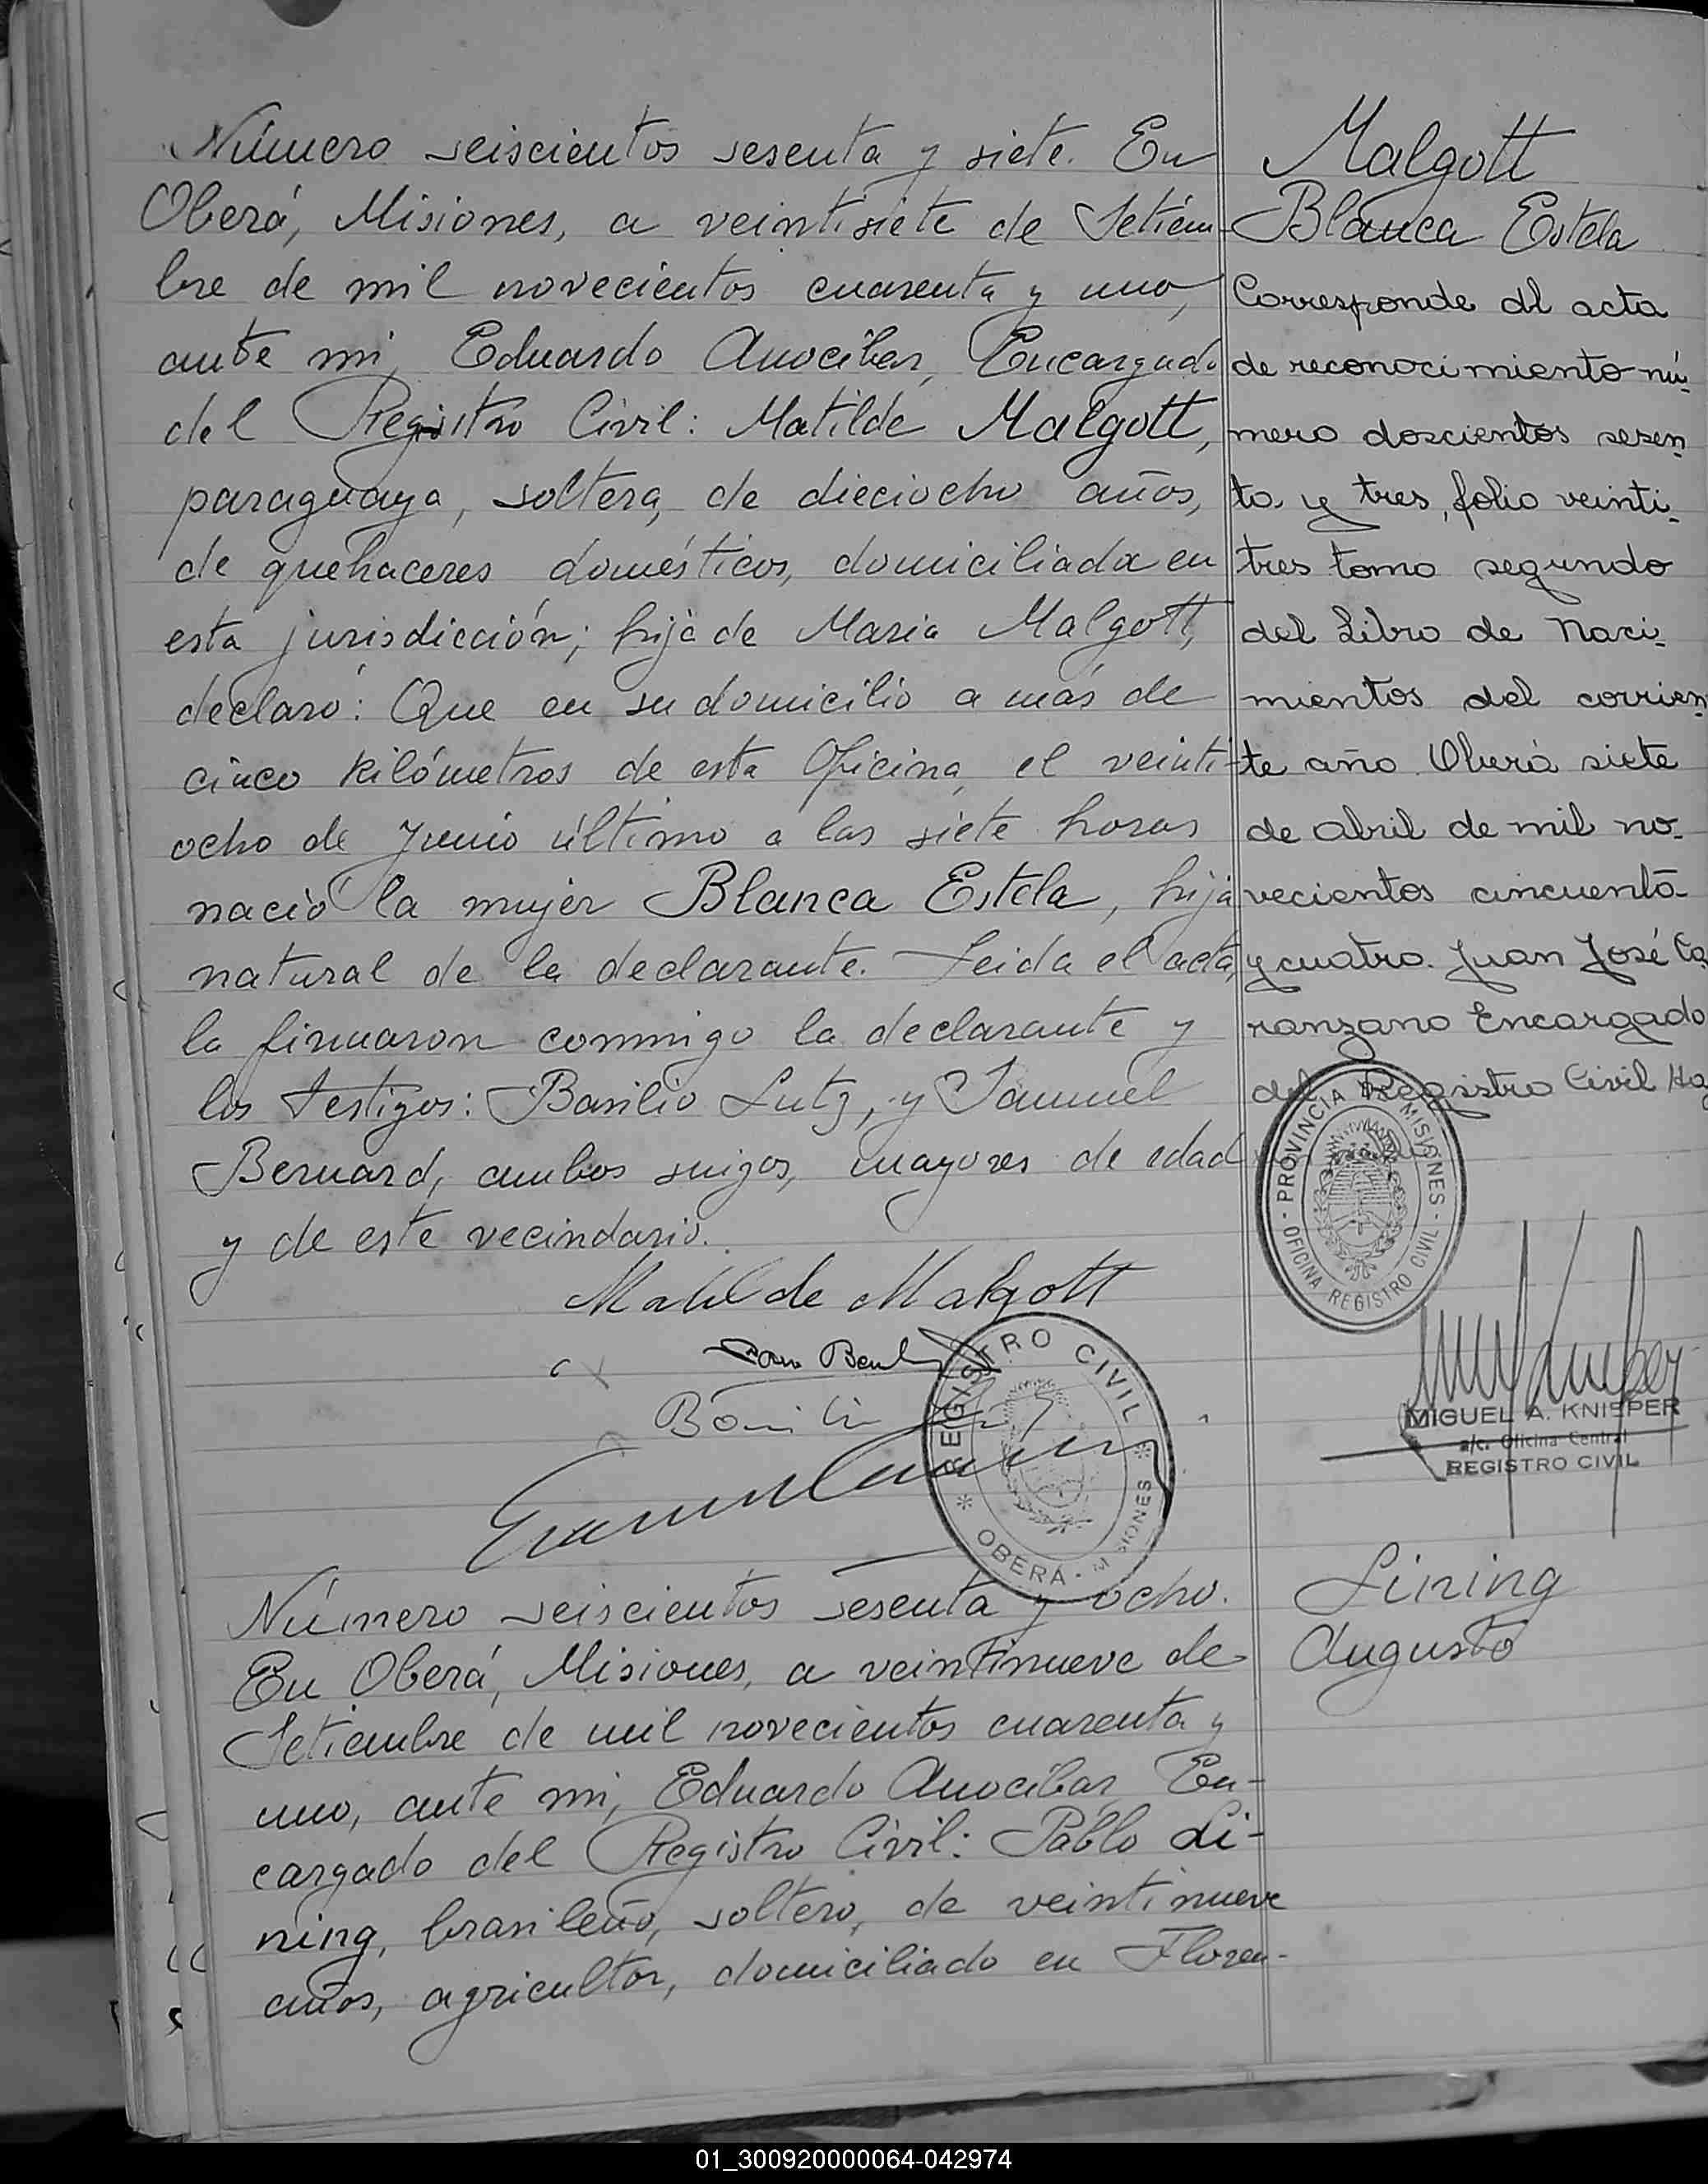 Número seiscientos sesenta y siete. En
Oberá, Misiones, a veintisiete de Setiem-
bre de mil novecientos cuarenta y uno,
ante mi, Eduardo Anocibar, Encargado
del Registro Civil: Matilde Malgott,
paraguaya, soltera, de dieciocho años,
de quehaceres domésticos, domiciliada en
esta jurisdicción; hija de Maria Malgott,
declaró: Que en su domicilio a más de
cinco kilómetros de esta Oficina, el veinti-
ocho de Junio último a las siete horas
nació la mujer Blanca Estela, hija
natural de la declarante. Leida el acta,
la firmaron conmigo la declarante y
los testigos: Basilio Lutz, y Samuel
Bernard, ambos suizos, mayores de edad
y de este vecindario.
Matilde Malgott
REGISTRO CIVIL
OBERÁ - MISIONES
Malgott
Blanca Estela
Corresponde al acta
de reconocimiento nú-
mero doscientos sesen-
ta y tres, folio veinti-
tres tomo segundo
del Libro de Naci-
mientos del corrien-
te año. Oberá siete
de abril de mil no-
vecientos cincuenta
y cuatro. Juan José Ca
ranzano Encargado
del Registro Civil Ha
PROVINCIA DE MISIONES
- OFICINA REGISTRO CIVIL -
MIGUEL A. KNISPER
a/c. Oficina Central
REGISTRO CIVIL
Número seiscientos sesenta y ocho.
En Oberá, Misiones, a veintinueve de
Setiembre de mil novecientos cuarenta y
uno, ante mi, Eduardo Anocibar, En-
cargado del Registro Civil: Pablo Li-
ning, brasileño, soltero, de veintinueve
años, agricultor, domiciliado en Floren-
Lining
Augusto
01_300920000064-042974